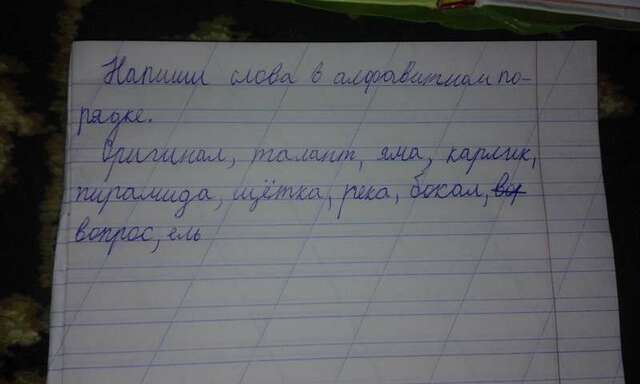 Напиши слова в алфавитном по-
рядке.
Оригинал, талант, яма, карлик,
пирамида, щётка, река, бокал,
вопрос, ель